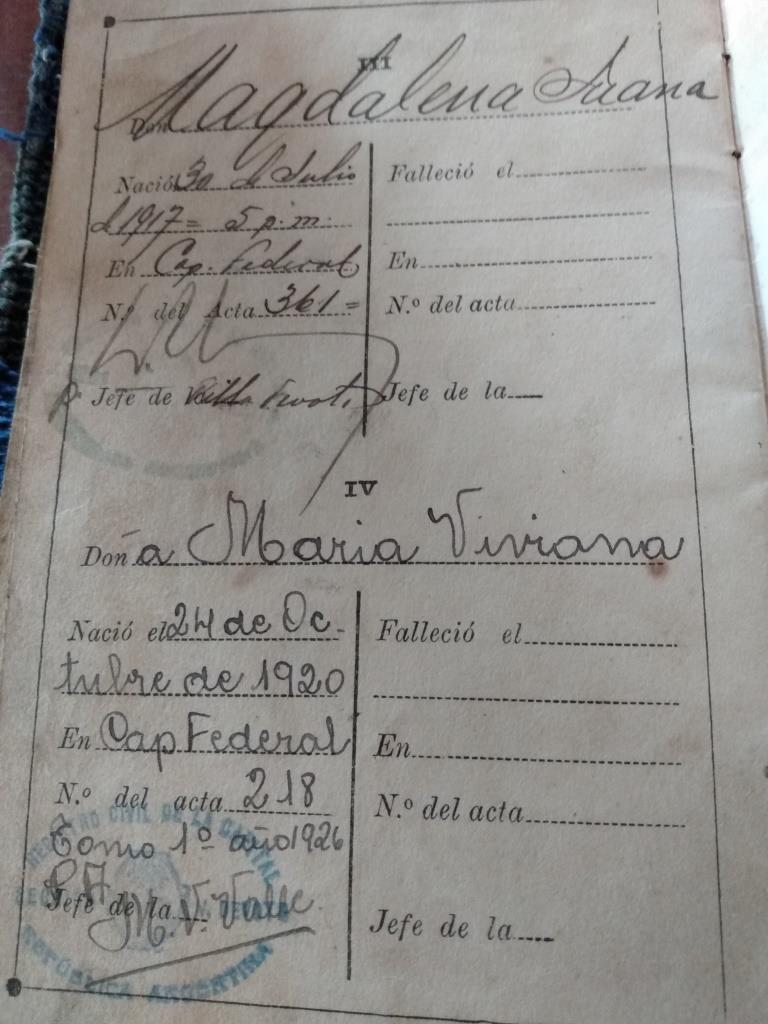 III
Don Magdalena Juana
Nació 30 de Julio
d 1917 = 5 p.m.
En Cap. Federal
N.º del Acta 361 =
p. Jefe de Villa
Falleció el
En
N.º del acta
Jefe de la
IV
Doña Maria Viviana
Nació el 24 de Oc-
tubre de 1920
En Cap Federal
N.º del acta 218
Tomo 1º año 1926
Jefe de la
M. V. Valle
Falleció el
En
N.º del acta
Jefe de la
REGISTRO CIVIL DE LA CAPITAL
REPÚBLICA ARGENTINA